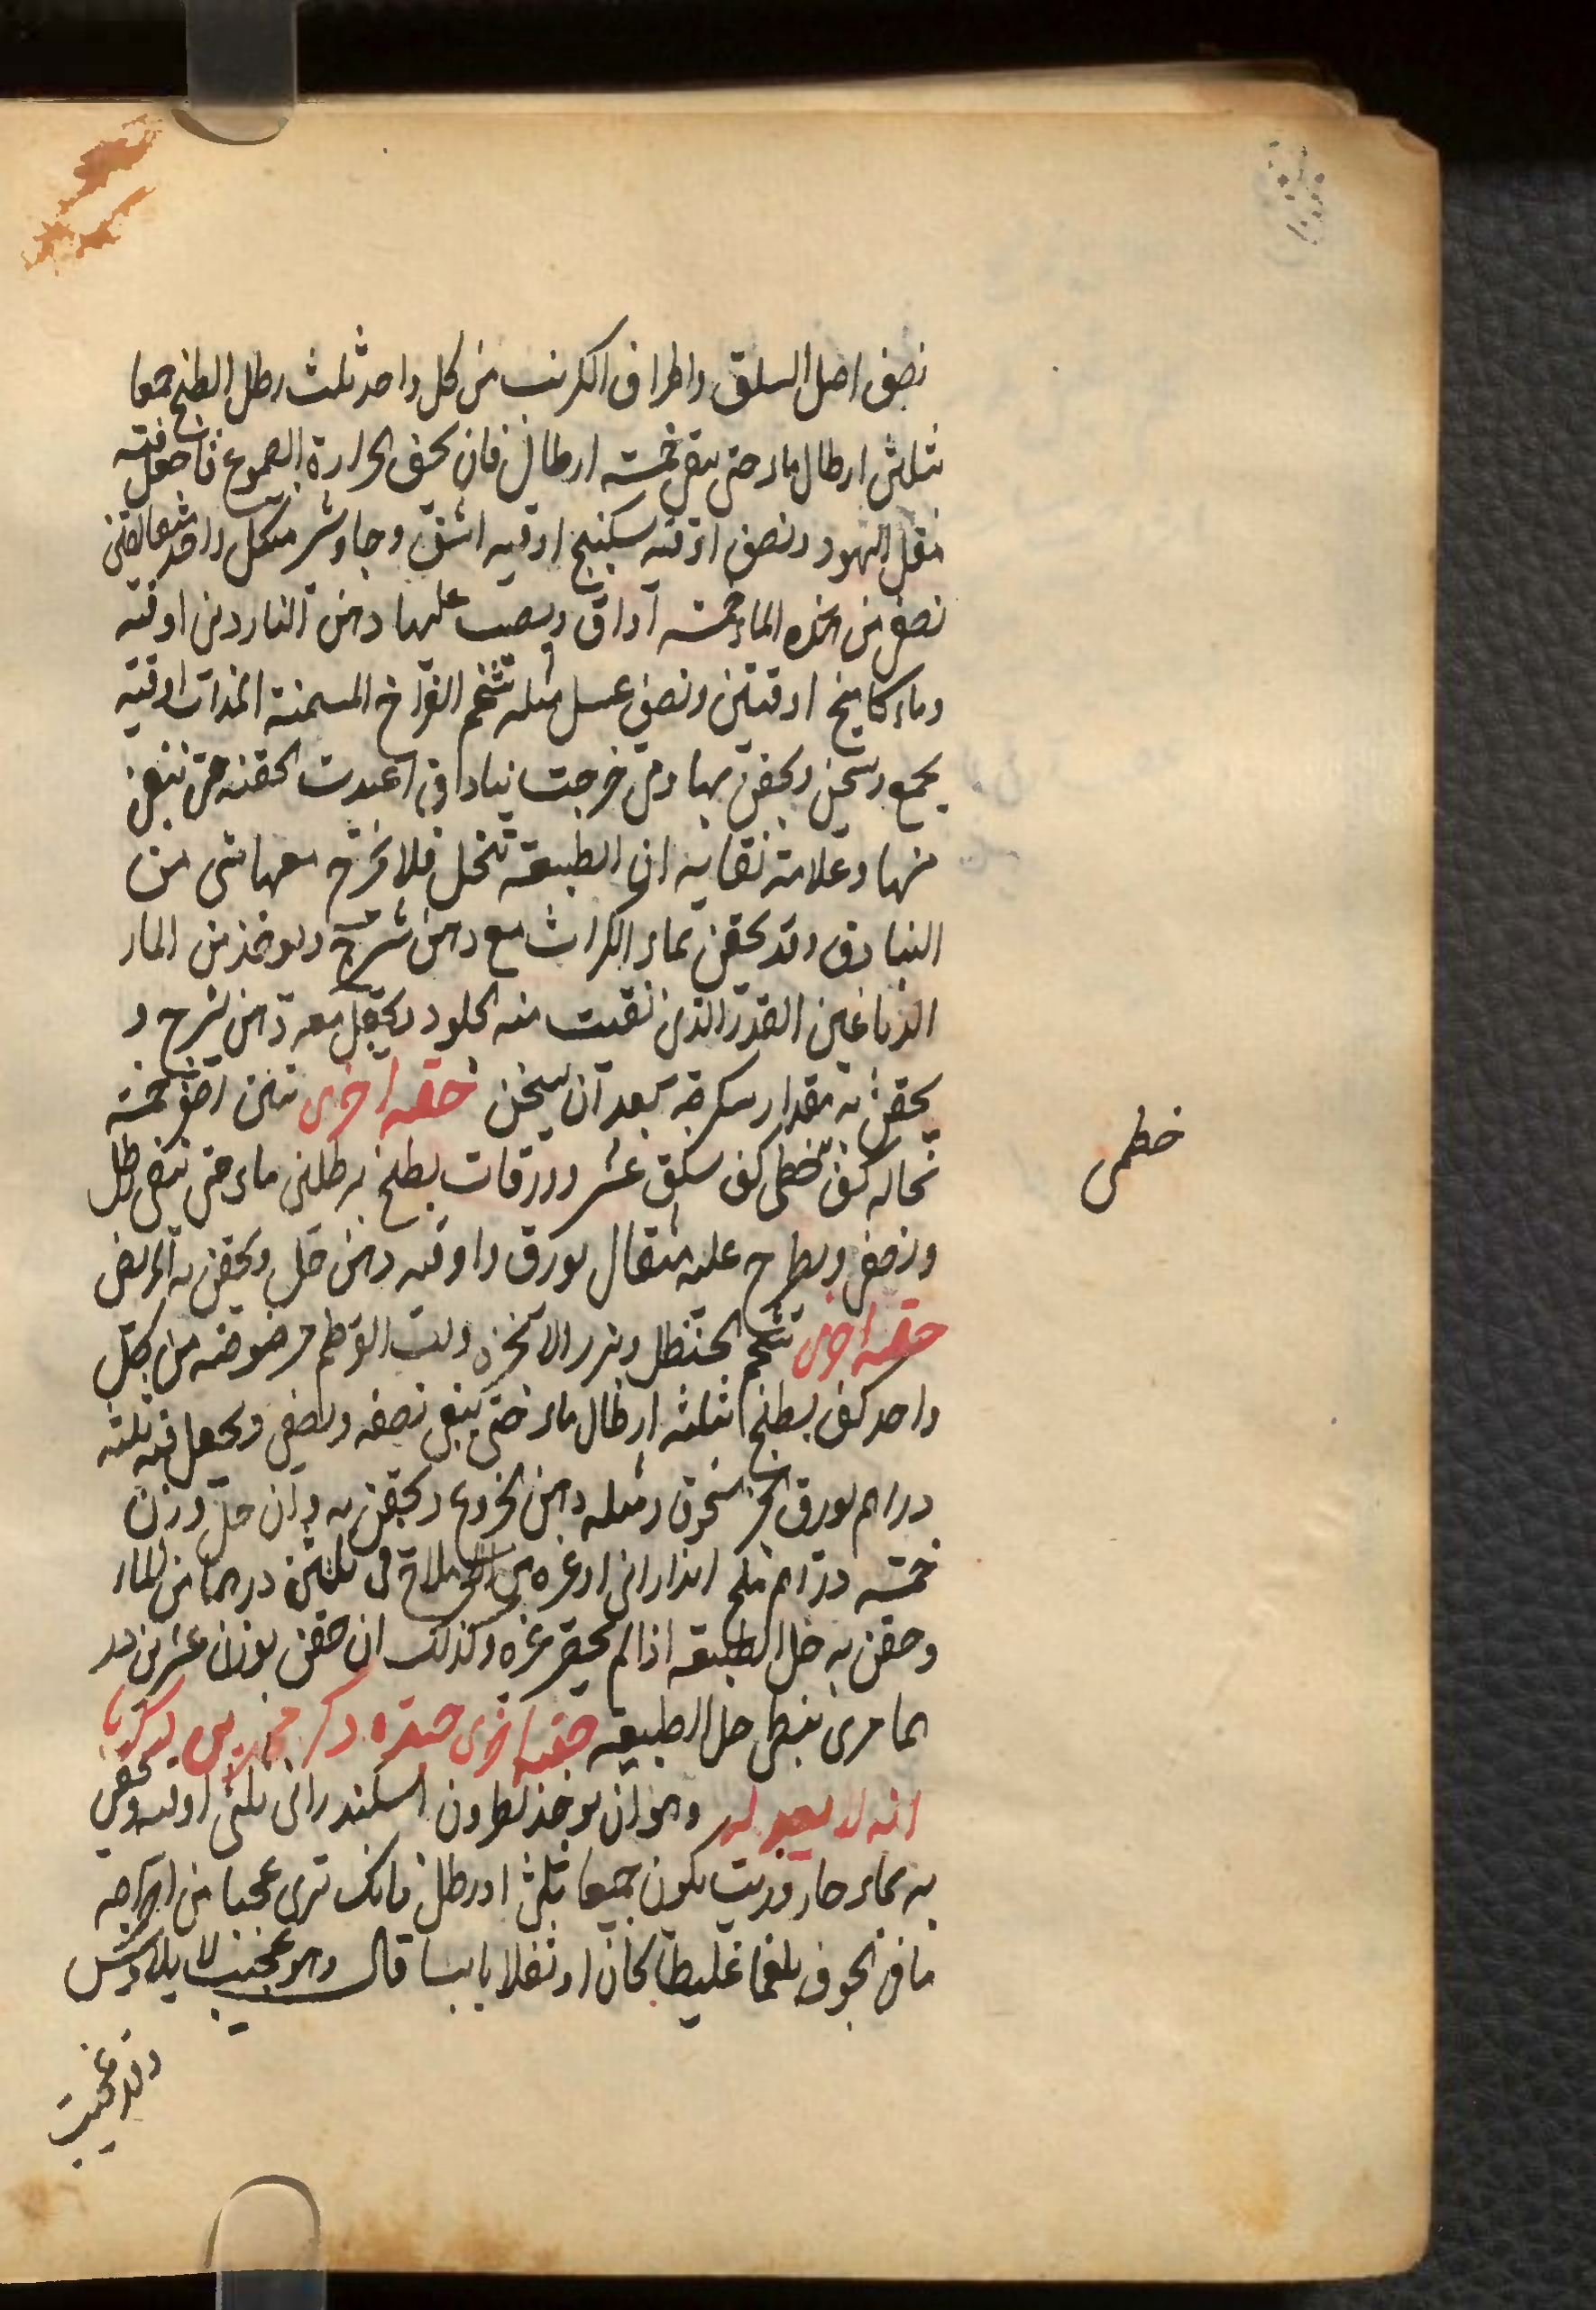 نصف اصل السلق واطراف الكرنب من كل واحد ثلث رطل الطبخ جميعا
بثلثين ارطال ماء حتى يبقى خمسة ارطال فان لحق الحرارة الصموغ فاجعل فيه
مقل اليهود ونصف اوقية سكبينج اوقيه اشق وجاوشير من كل واحد مثقالين
نصف من هذه الماء خمسة اواق ويصب عليها دهن الناردين اوقيه
وماء كامخ اوقيتين ونصف عسل مثله شحم الفراخ المسمنة المذاب اوقيه
يجمع ويسخن ويحقن بها ومتى خرجت بنادق اعيدت الحقنه حتى ينقى
منها وعلامة نقايه ان الطبيعة تنحل فلا يخرج معها شي من
البنادق وقد يحقن بماء الكراث مع دهن شيرج ويوخذ من الماء
الدباغين القدر الذى نقيت منه الجلود ويجعل معه دهن شيرج و
يحقن به مقدار سكرجه بعد ان يسخن حقنه اخرى تين ابيض خمسة
نخاله كف خطمى كف سلق عشر وورقات يطبخ برطلين ماء حتى يبقى رطل
ونصف ويطرح عليه مثقال بورق واوقيه دهن خل ويحقن به المريض
حقنه اخرى شحم الحنظل وبزر الانجره ولب القرطم مرضوضه من كل
واحد كف يطبخ بثلثة ارطال ماء حتى يبقى نصفه ويصفى ويجعل فيه ثلثه
دراهم بورق الخبز مسحوق ومثله دهن الخروع ويحقن به وان حل وزن
خمسة دراهم ملح اندرانى او غيره من الاملاح فى ثلثين درهما من الماء
وحقن به حل الطبيعه اذا لم يحضر غيره وكذلك ان حقن بوزن عشرين در
هما مرى نبطى حل الطبيعه حقنه اخرى ذكر محمد بن زكريا
انه لا يعدله وهو ان يوخذ نطرون اسكندرانى ثلثى اوقيه ويحقن
به بماء حار وزيت يكون جميعا ثلثى رطل فانك ترى عجبا من اخراجه
ما فى الجوف بلغما غليظا كان او ثفلا يابسا قال وهو عجيب لا يلاوس
وقد عجيب
خطمى